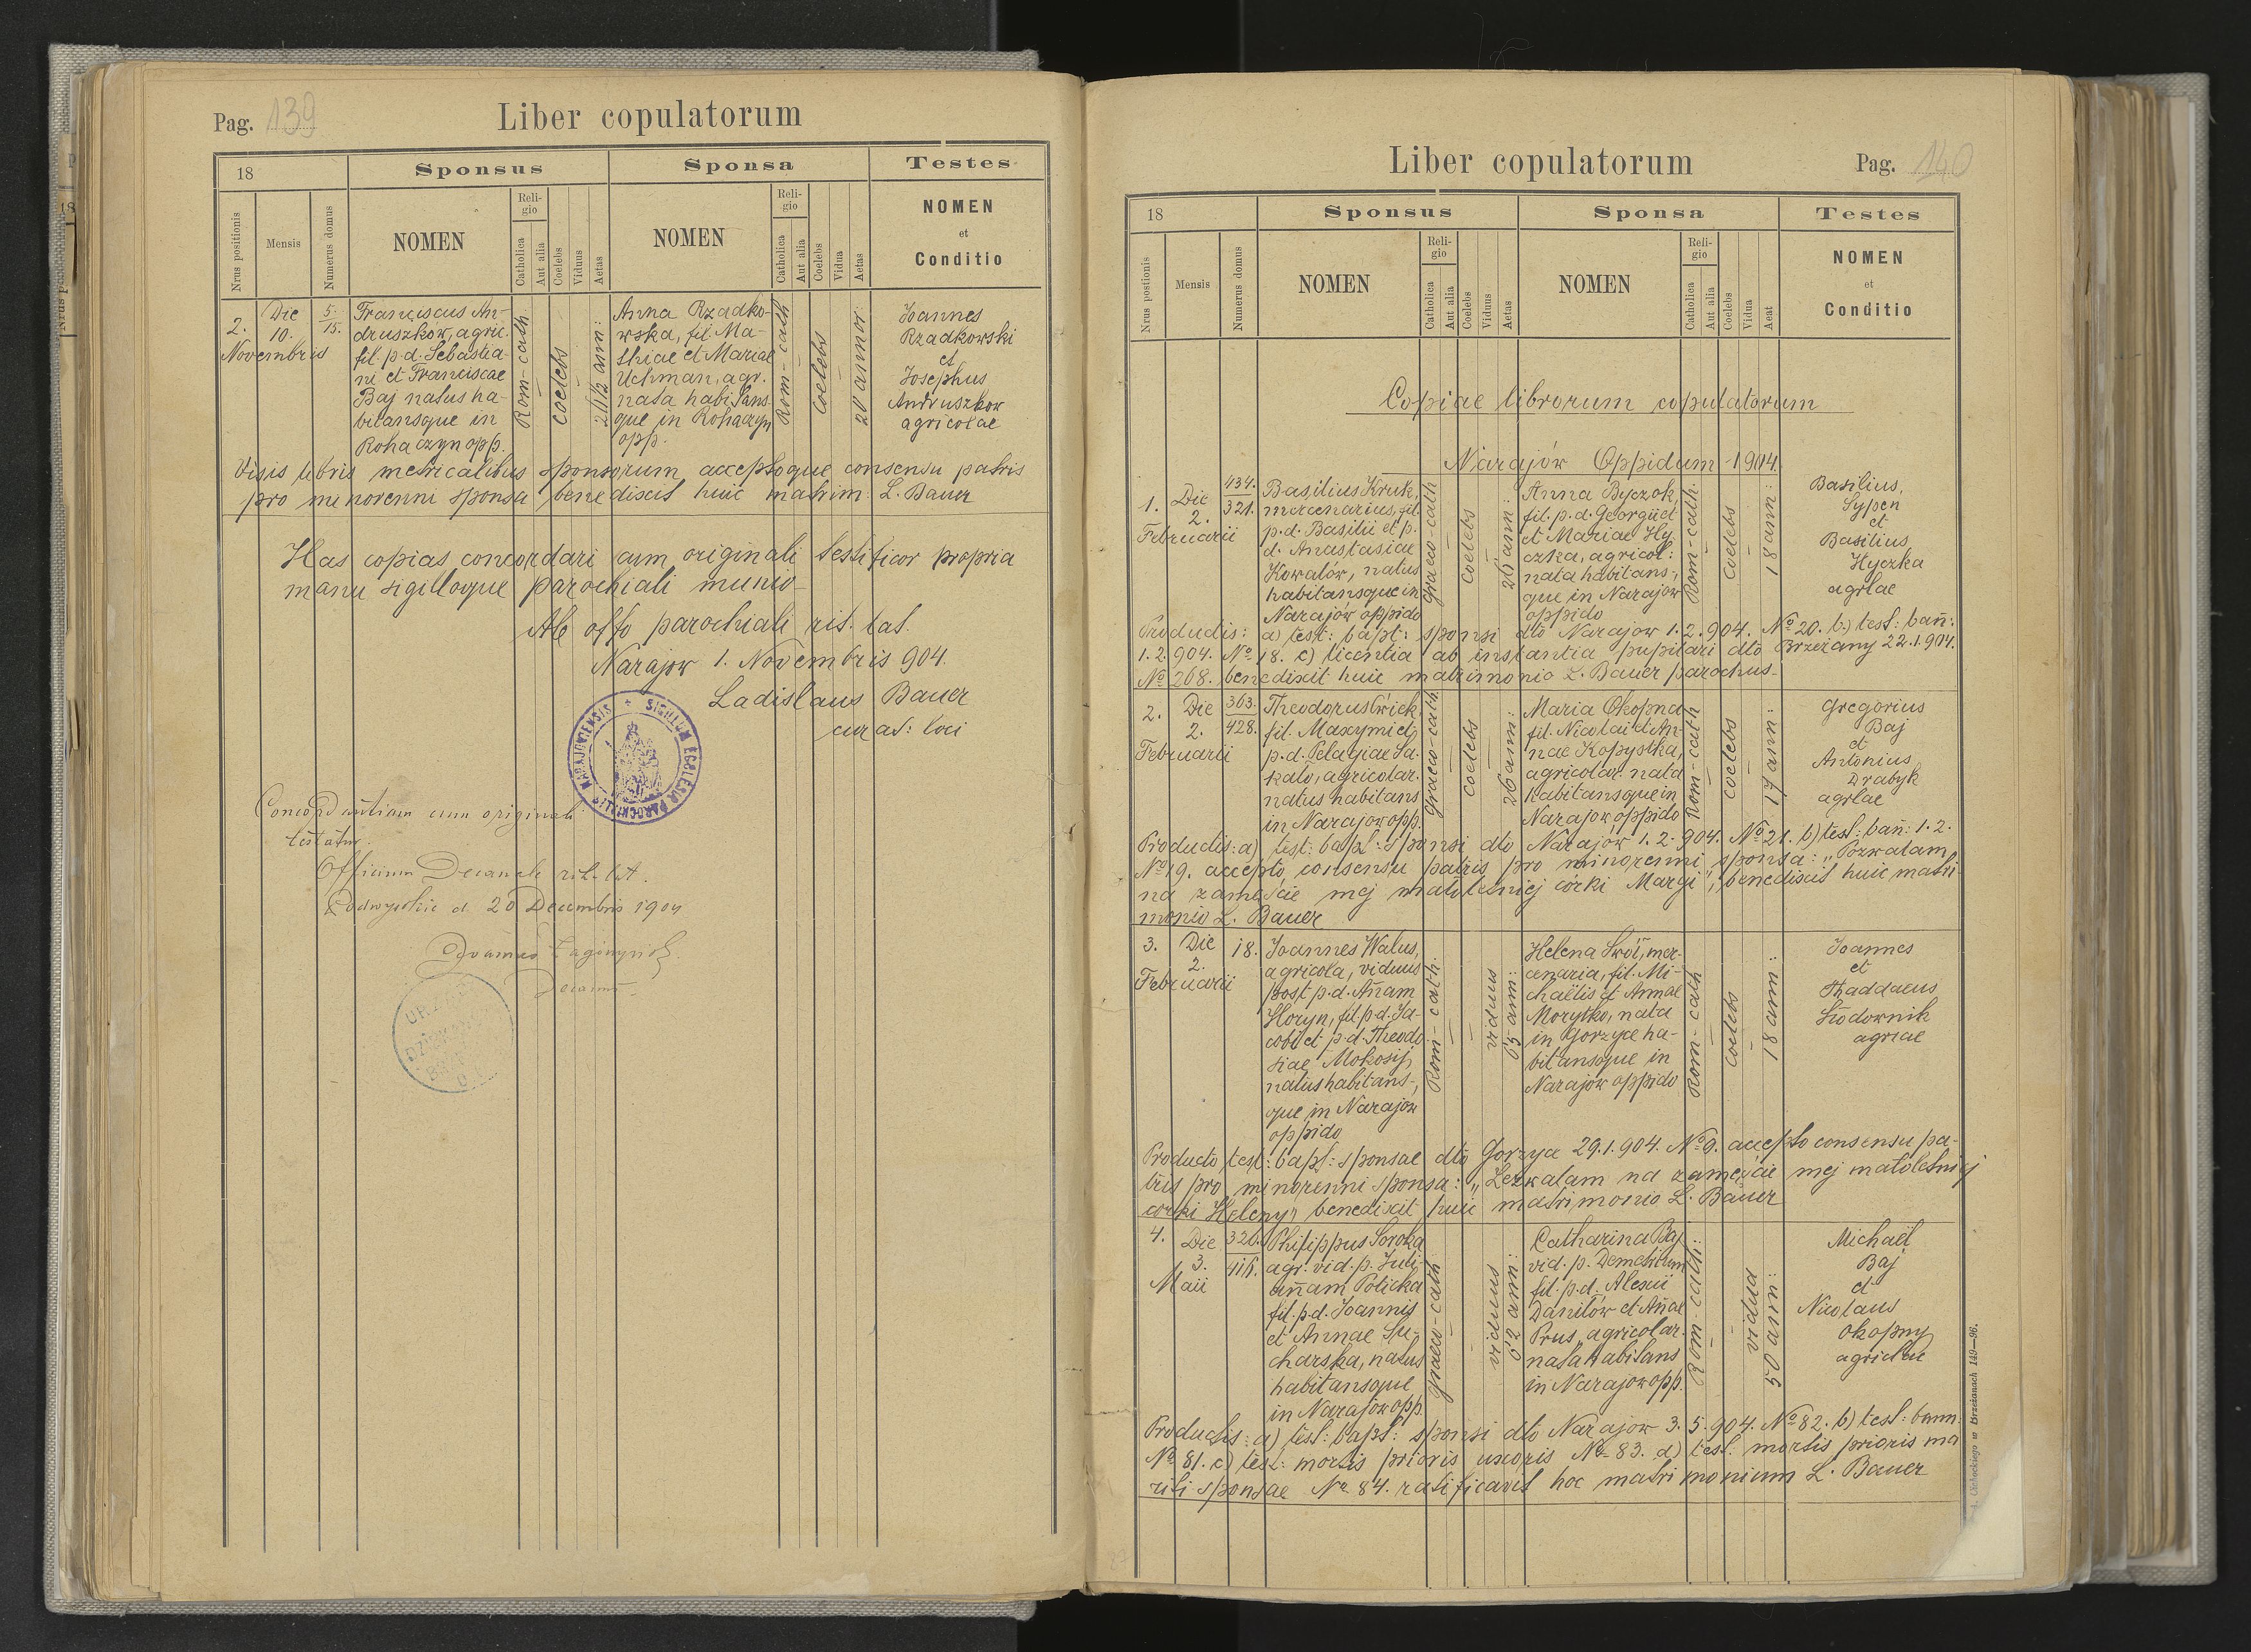 Pag. 139
Liber copulatorum
18
Sponsus
Sponsa
Testes
Nrus positionis
Mensis
Numerus domus
NOMEN
Religio
Catholica
Aut alia
Coelebs
Viduus
Aetas
NOMEN
Religio
Catholica
Aut alia
Coelebs
Vidua
Aetas
NOMEN
et
Conditio
2.
Die
10.
Novembris
5.
15.
Franciscus An-
druszkow, agric.
fil. p.d. Sebastia-
ni et Franciscae
Baj natus ha-
bitansque in
Rohaczyn opp.
Rom-cath.
coelebs
21 1/2 ann:
Anna Rzadko-
wska, fil. Ma-
thiae et Mariae
Uchman, agr.
nata habitans-
que in Rohaczyn
opp.
Rom-cath
coelebs
20 annor.
Joannes
Rzadkowski
et
Josephus
Andruszkow
agricolae
Visis libris metricalibus sponsorum acceptoque consensu patris
pro minorenni sponsa benedixit huic matrim: L. Bauer
Has copias concordari cum originali testificor propria
manu sigilloque parochiali munio-
Ab offo parochiali rit. lat.
Narajow 1. Novembris 904.
Ladislaus Bauer
curat: loci
SIGILLUM ECCLESIAE PAROCHIALIS NARAJOVIENSIS
Concordantiam cum originali
testatur.
Officium Decanale rit. lat.
d. 20 Decembris 1904
Liber copulatorum
Pag. 140
18
Sponsus
Sponsa
Testes
Nrus postionis
Mensis
Numerus domus
NOMEN
Religio
Catholica
Aut alia
Coelebs
Viduus
Aetas
NOMEN
Religio
Catholica
Aut alia
Coelebs
Vidua
Aeat
NOMEN
et
Conditio
Copiae librorum copulatorum
Narajów Oppidum 1904.
1.
Die
2.
Februarii
434.
321.
Basilius Kruk,
mercenarius, fil.
p.d. Basilii et p.
d. Anastasiae
Kowalów, natus
habitansque in
Narajów oppido
Graeco-cath
coelebs
26 ann:
Anna Byczok,
fil. p.d. Georgii et
et Mariae Hy-
czka, agricol:
nata habitans-
que in Narajow
oppido
Rom-cath.
coelebs
18 ann:
Basilius,
Sypen
et
Basilius
Hyczka
agrlae
Productis: a) test: bapt: sponsi dto Narajow 1.2.904. No 20. b) test: bañ:
1.2.904. No 18. c) licentia ab instantia pupilari dto Brzeżany 22.1.904.
No 268. benedixit huic matrimonio L. Bauer parochus-
2.
Die
2.
Februarii
303.
428.
Theodorus Ćwiek,
fil. Maxymi et
p.d. Pelagiae Sa-
kalo, agricolar.
natus habitans
in Narajow opp.
Graeco-cath.
coelebs
26 ann:
Maria Okopna
fil. Nicolai et An-
nae Kopystka,
agricolar. nata
habitansque in
Narajow oppido
Rom-cath
coelebs
17 ann:
Gregorius
Baj
et
Antonius
Drabyk
agrlae
Productis: a) test: bapt: sponsi dto Narajów 1.2.904. No 21. b) test: bañ: 1.2.
No 19. accepto consensu patris pro minorenni sponsa: „Pozwalam
na zamęście mej małoletniej córki Maryi", benedixit huic matri-
monio L. Bauer
3.
Die
2.
Februarii
18.
Joannes Walus,
agricola, viduus
post p.d. Añam
Horyn, fil. p.d. Ja-
cobi et p.d. Theodo-
siae Mokosij,
natus habitans-,
que in Narajow
oppido
Rom-cath.
viduus
65 ann:
Helena Swół, mer-
cenaria, fil. Mi-
chaëlis et Annae
Morytko, nata
in Gorzyce ha-
bitansque in
Narajów oppido
Rom-cath
coelebs
18 ann:
Joannes
et
Thaddaeus
Środownik
agrlae
Producto test: bapt: sponsae dto Gorzyce 29.1.904. No 9. accepto consensu pa-
tris pro minorenni sponsa: „Zezwalam na zamęście mej małoletniej
córki Heleny" benedixit huic matrimonio L. Bauer
4.
Die
3.
Maii
326.
416.
Philippus Soroka
agr. vid. p. Juli-
añam Policka
fil. p.d. Joannis
et Annae Su-
charska, natus
habitansque
in Narajow opp.
Graeco-cath
viduus
62 ann:
Catharina Baj
vid. p. Demetrium
fil. p.d. Alexii
Danilów et Añae
Prus, agricolar.
nata habitans
in Narajow opp.
Rom-cath:
vidua
50 ann:
Michaël
Baj
et
Nicolaus
Okopny
agriclae
Productis: a) test: bapt: sponsi dto Narajow 3.5.904. No 82. b) test: bann:
No 81. c) test: mortis prioris uxoris No 83. d) test. mortis prioris ma-
riti sponsae No 84. ratificavit hoc matrimonium L. Bauer
w Brzeżanach 149—96.